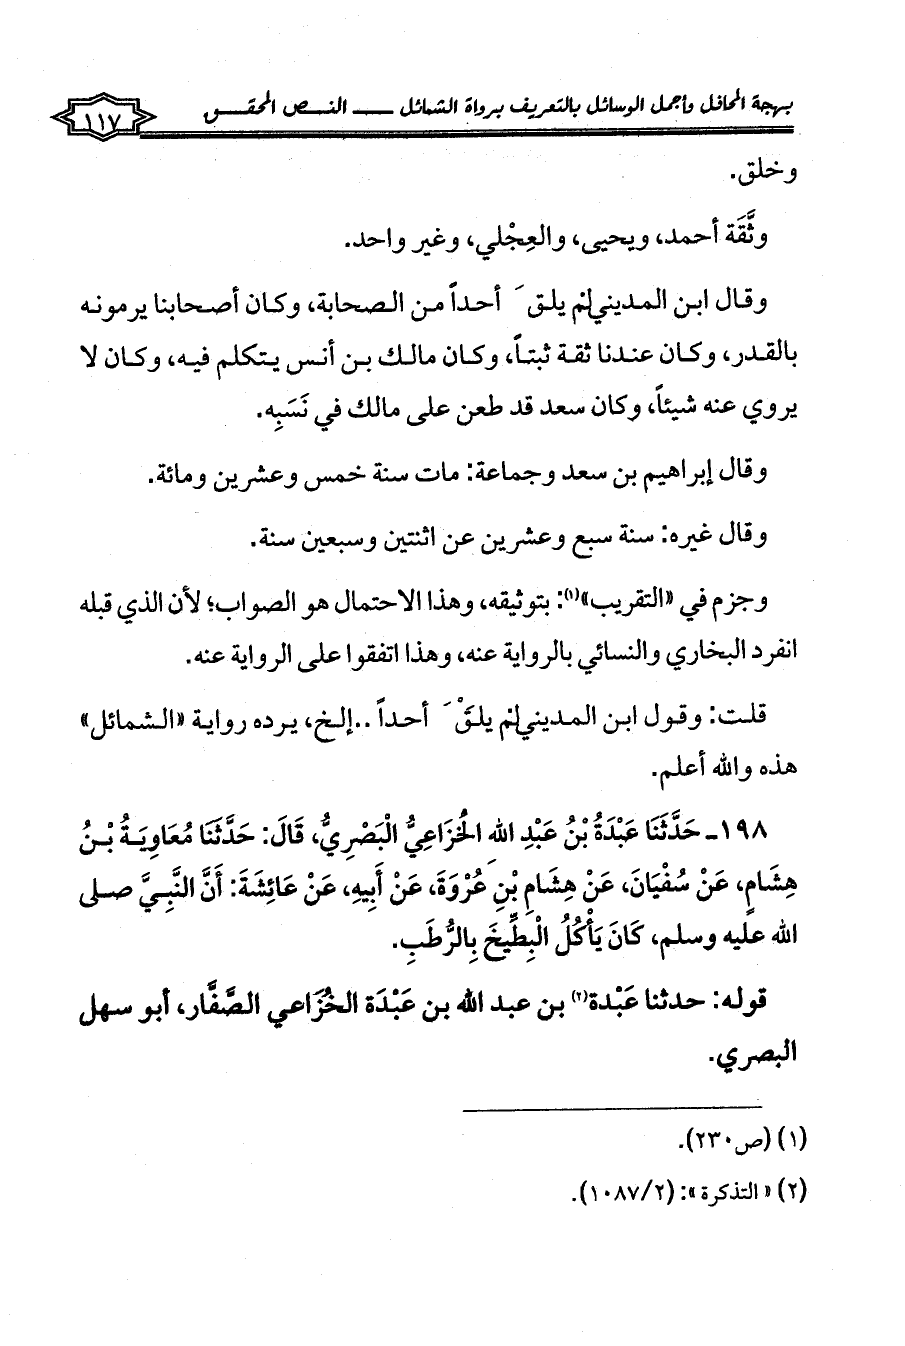 بهجة المحافل وأجمل الوسائل بالتعريف برواة الشمائل ـــ النـص المحقـق
١١٧
وخلق.
وثَّقَة أحمد، ويحيى، والعِجْلي، وغير واحد.
وقال ابن المديني: لم يلق أحداً من الصحابة، وكان أصحابنا يرمونه
بالقدر، وكان عندنا ثقة ثبتاً، وكان مالك بن أنس يتكلم فيه، وكان لا
يروي عنه شيئاً، وكان سعد قد طعن على مالك في نَسَبِه.
وقال إبراهيم بن سعد وجماعة: مات سنة خمس وعشرين ومائة.
وقال غيره: سنة سبع وعشرين عن اثنتين وسبعين سنة.
وجزم في «التقريب»(١): بتوثيقه، وهذا الاحتمال هو الصواب؛ لأن الذي قبله
انفرد البخاري والنسائي بالرواية عنه، وهذا اتفقوا على الرواية عنه.
قلت: وقول ابن المديني: لم يلقَ أحداً ..إلخ، يرده رواية «الشمائل»
هذه والله أعلم.
١٩٨ـ حَدَّثَنَا عَبْدَةُ بْنُ عَبْدِ الله الخُزَاعِيُّ الْبَصْرِيُّ، قَالَ: حَدَّثَنَا مُعَاوِيَةُ بْنُ
هِشَامٍ، عَنْ سُفْيَانَ، عَنْ هِشَامِ بْنِ عُرْوَةَ، عَنْ أَبِيهِ، عَنْ عَائِشَةَ: أَنَّ النَّبِيَّ صلى
الله عليه وسلم، كَانَ يَأْكُلُ الْبِطِّيخَ بِالرُّطَبِ.
قوله: حدثنا عَبْدة(٢) بن عبد الله بن عَبْدَة الخُزَاعي الصَّفَّار، أبو سهل
البصري.
(١) (ص٢٣٠).
(٢) «التذكرة»: (١٠٨٧/٢).